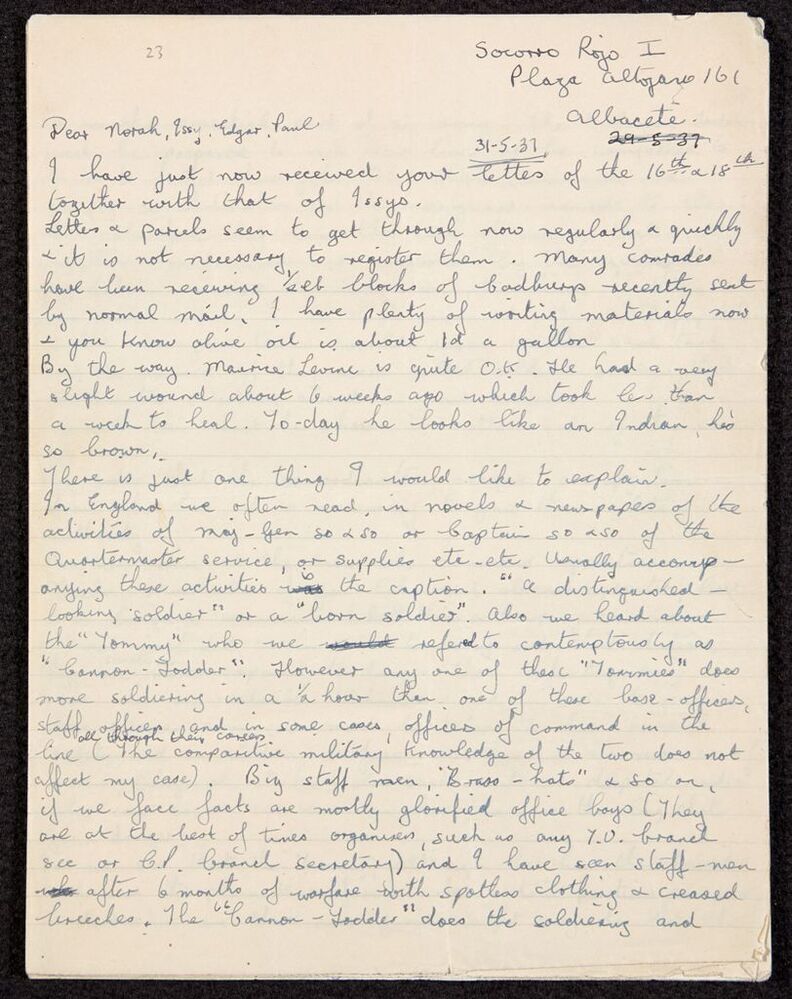 23
Socorro Rojo I
Plaza Altozano 161
Albacete.
29-5-37
31-5-37
Dear Norah, Issy, Edgar, Paul
I have just now received your lettes of the 16th & 18th
together with that of Issys.
Lettes & parcels seem to get through now regularly & quickly
& it is not necessary to register them. Many comrades
have been receiving ½lb blocks of Cadburys recently sent
by normal mail. I have plenty of writing materials now
& you know olive oil is about 1d a gallon
By the way. Maurice Levine is quite O.K. He had a very
slight wound about 6 weeks ago which took less than
a week to heal. To-day he looks like an Indian, he's
so brown.
There is just one thing I would like to explain.
In England we often read, in novels & newspapers of the
activities of maj-Gen so & so or Captain so & so of the
Quartermaster service, or supplies etc-etc. Usually accomp-
anying these activities was is the caption. "a distinguished-
looking soldier" or a "born soldier". Also we heard about
the "Tommy" who we would refered to contemptously as
"Cannon-Fodder". However any one of these "Tommies" does
more soldiering in a ½ hour then one of these base-officers,
staff officers and in some cases, officers of command in the
all through their careers
line (The comparitive military knowledge of the two does not
affect my case). Big staff men, "Brass-hats" & so on,
if we face facts are mostly glorified office boys (They
are at the best of times organisers, such as any T.U. branch
sec or C.P. branch secretary) and I have seen staff-men
after 6 months of warfare with spotless clothing & creased
breeches. The "Cannon-Fodder" does the soldiering and